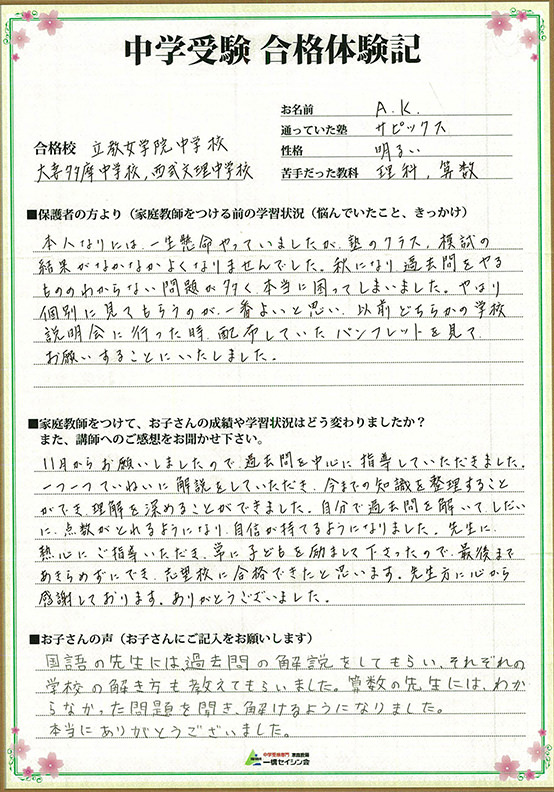 中学受験 合格体験記
お名前 A.K.
通っていた塾 サピックス
合格校 立教女学院中学校
性格 明るい
大妻多摩中学校, 西武文理中学校
苦手だった教科 理科, 算数
■保護者の方より（家庭教師をつける前の学習状況（悩んでいたこと、きっかけ）
本人なりには、一生懸命やっていましたが、塾のクラス、模試の
結果がなかなかよくなりませんでした。秋になり過去問をやる
もののわからない問題が多く、本当に困ってしまいました。やはり
個別に見てもらうのが、一番よいと思い、以前どちらかの学校
説明会に行った時、配布していたパンフレットを見て、
お願いすることにいたしました。
■家庭教師をつけて、お子さんの成績や学習状況はどう変わりましたか？
また、講師へのご感想をお聞かせ下さい。
11月からお願いしましたので、過去問を中心に指導していただきました。
一つ一つていねいに解説をしていただき、今までの知識を整理すること
ができ、理解を深めることができました。自分で過去問を解いてしだい
に、点数がとれるようになり、自信が持てるようになりました。先生に、
熱心にご指導いただき、常に子どもを励まして下さったので、最後まで
あきらめずにでき、志望校に合格できたと思います。先生方に心から
感謝しております。ありがとうございました。
■お子さんの声（お子さんにご記入をお願いします）
国語の先生には、過去問の解説をしてもらい、それぞれの
学校の解き方も教えてもらいました。算数の先生には、わか
らなかった問題を聞き、解けるようになりました。
本当にありがとうございました。
中学受験専門 家庭教師
一橋セイシン会